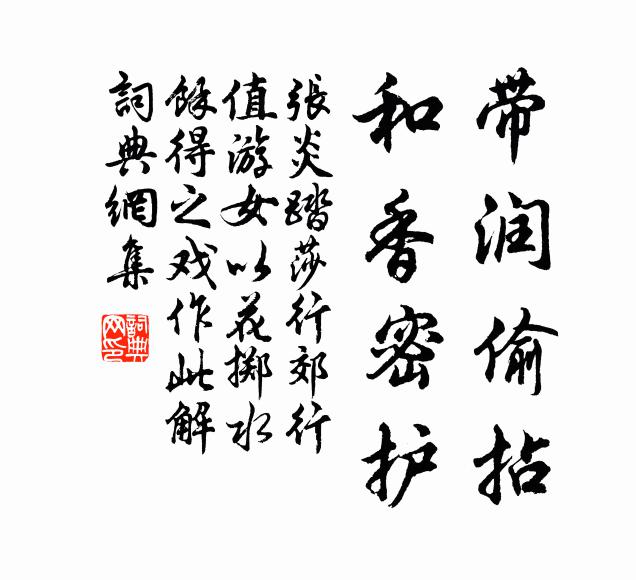 带润偷拈
和香密护
張炎踏莎行郊行
值游女以花掷水
馀得之戏作此解
詞典網集
詞典
网印